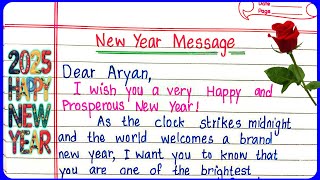 Date
Page
New Year Message
2025
HAPPY
NEW
YEAR
Dear Aryan,
I wish you a very Happy and
Prosperous New Year!
As the clock strikes midnight
and the world welcomes a brand
new year, I want you to know that
you are one of the brightest